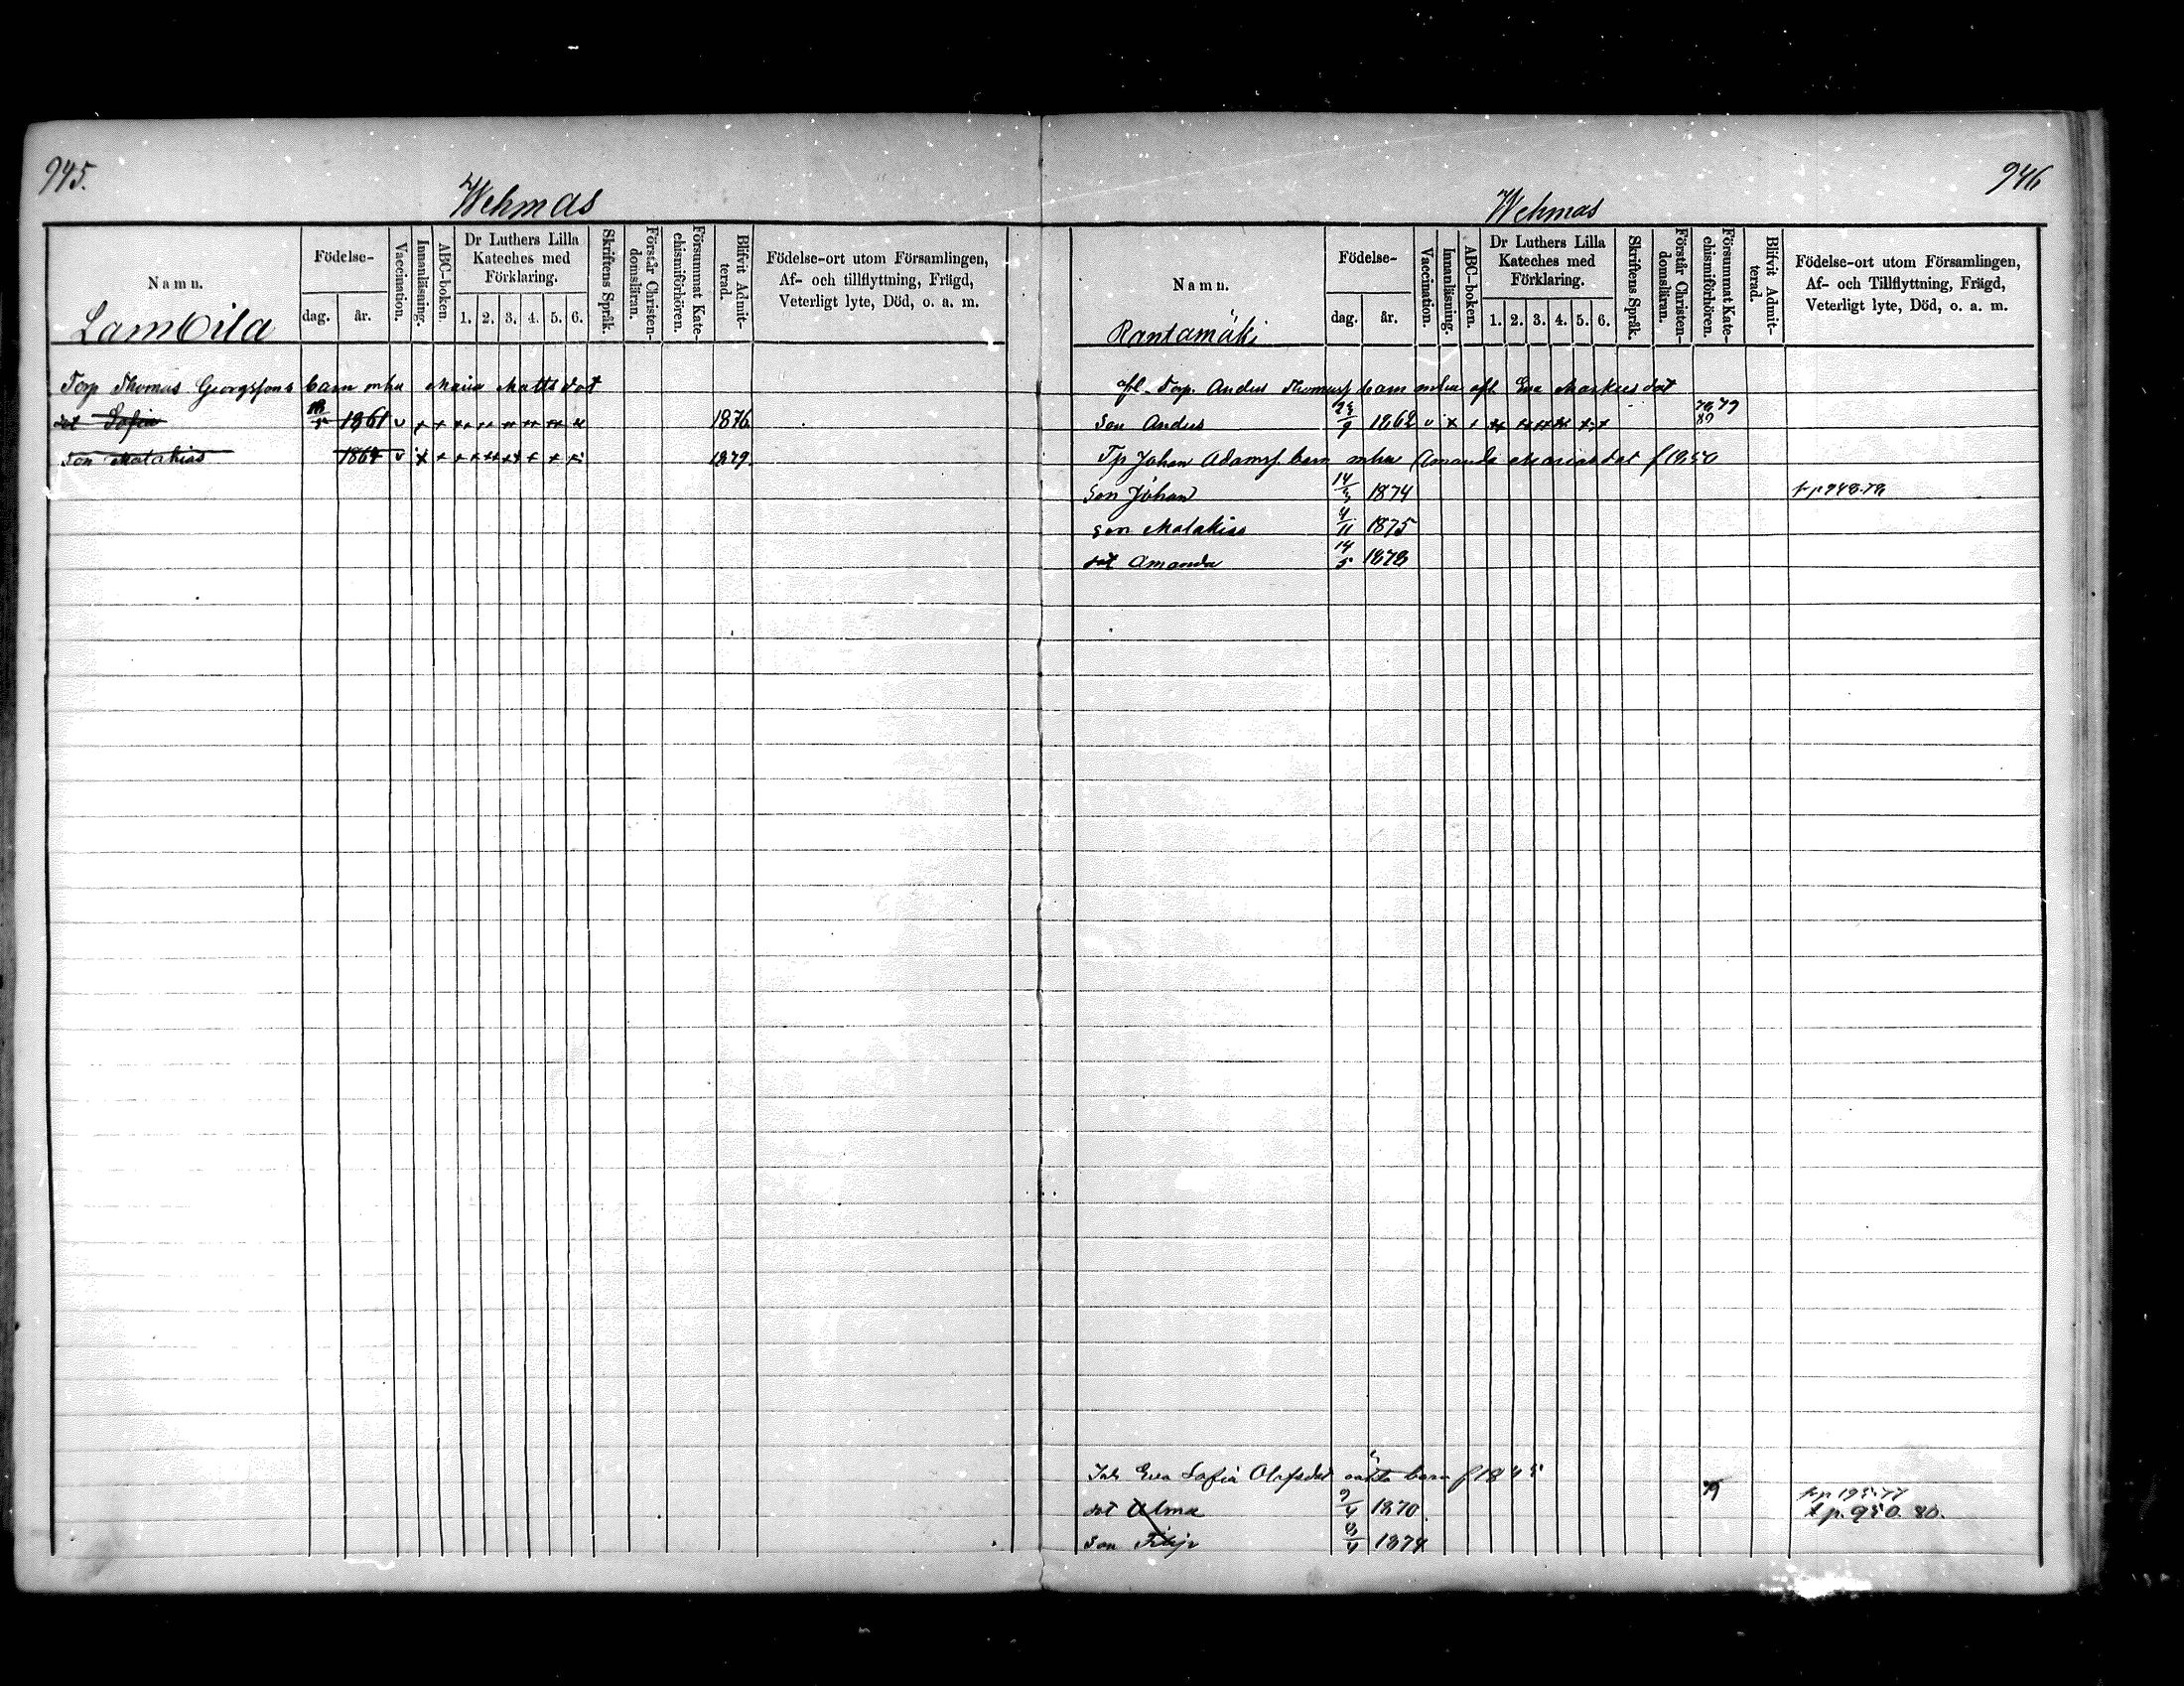 945.
Wehmas
Namn.
Födelse-
dag. år.
Vaccination.
Innanläsning.
ABC-boken.
Dr Luthers Lilla
Kateches med
Förklaring.
1. 2. 3. 4. 5. 6.
Skriftens Språk.
Förstår Christen-
domsläran.
Försummat Kate-
chismiförhören.
Blifvit Admit-
terad.
Födelse-ort utom Församlingen,
Af- och tillflyttning, Frägd,
Veterligt lyte, Död, o. a. m.
Torp Thomas Georgssons barn mhu Maria Matts dot
dot Sofia 1861 v 1876
son Malakias 1864 v 1879
946
Wehmas
Namn.
Rantamäki
Födelse-
dag. år.
Vaccination.
Innanläsning.
ABC-boken.
Dr Luthers Lilla
Kateches med
Förklaring.
1. 2. 3. 4. 5. 6.
Skriftens Språk.
Förstår Christen-
domsläran.
Försummat Kate-
chismiförhören.
Blifvit Admit-
terad.
Födelse-ort utom Församlingen,
Af- och Tillflyttning, Frägd,
Veterligt lyte, Död, o. a. m.
afl. Torp. Anders Thomass barn mhu afl Eva Markus dot
Son Anders 1862 v 78, 79 80
Tp Johan Adamss. barn mhu Amanda Marias dot f 1850
Son Johan 14/3 1874
son Malakias 4/11 1875
dot Amanda 14/5 1878
Inh Eva Sofia Olofsdot barn f 1845
dot Alma 9/4 1870 79 fr p 195.77
t p. 950. 80.
Son Filip 1874